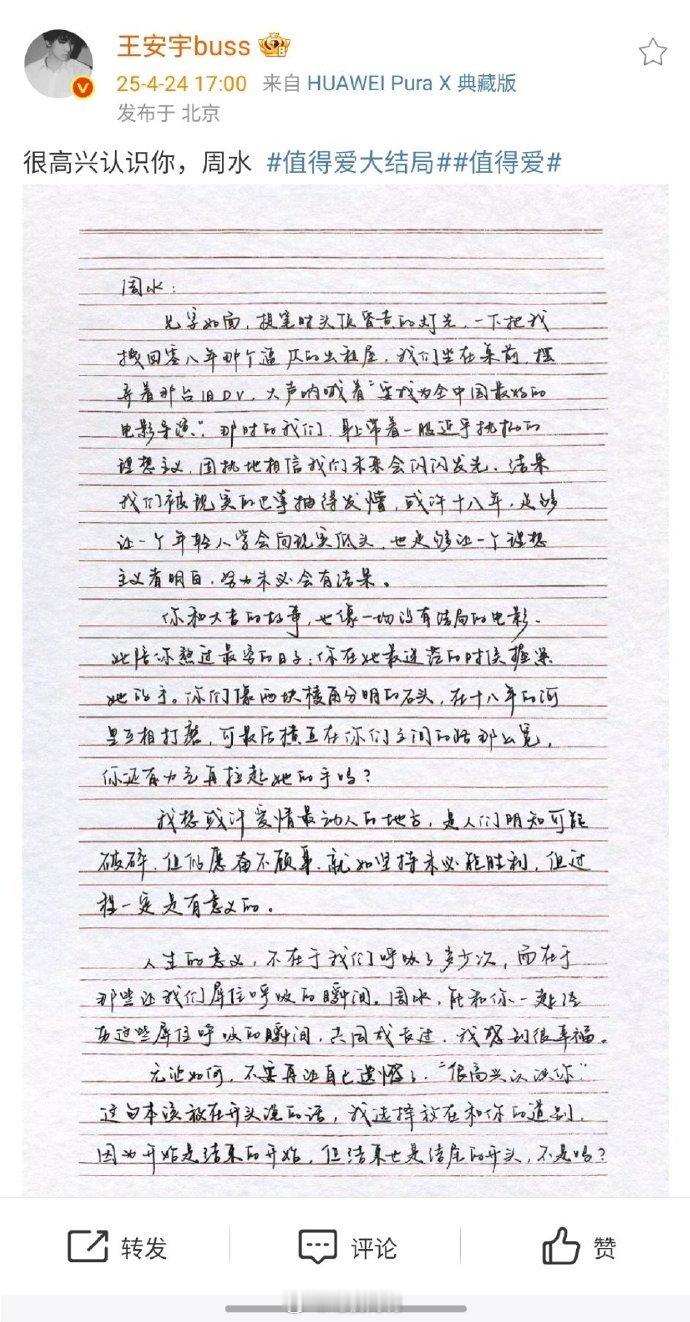 王安宇buss
25-4-24 17:00 来自 HUAWEI Pura X 典藏版
发布于 北京
很高兴认识你，周水 #值得爱大结局##值得爱#
周水：
见字如面，提笔时头顶昏黄的灯光，一下把我
拽回零八年那个逼仄的出租屋，我们坐在桌前，摆
弄着那台旧DV，大声呐喊着“要成为全中国最好的
电影导演”，那时的我们，身上带着一股近乎执拗的
理想主义，固执地相信我们未来会闪闪发光。结果
我们被现实的巴掌抽得发懵，或许十八年，足够
让一个年轻人学会向现实低头，也足够让一个理想
主义者明白，努力未必会有结果。
你和大吉的故事，也像一场没有结局的电影。
她陪你熬过最穷的日子，你在她最迷茫的时候握紧
她的手。你们像两块棱角分明的石头，在十八年的河
里互相打磨，可最后横亘在你们之间的路那么宽，
你还有力气再拉起她的手吗？
我想或许爱情最动人的地方，是人们明知可能
破碎，但仍愿奋不顾身，就如坚持未必能胜利，但过
程一定是有意义的。
人生的意义，不在于我们呼吸了多少次，而在于
那些让我们屏住呼吸的瞬间。周水，能和你一起经
历这些屏住呼吸的瞬间，共同成长过，我感到很幸福。
无论如何，不要再让自己遗憾了，“很高兴认识你”
这句本该放在开头说的话，我选择放在和你的道别，
因为开始是结束的开始，但结束也是结尾的开头，不是吗？
转发
评论
赞